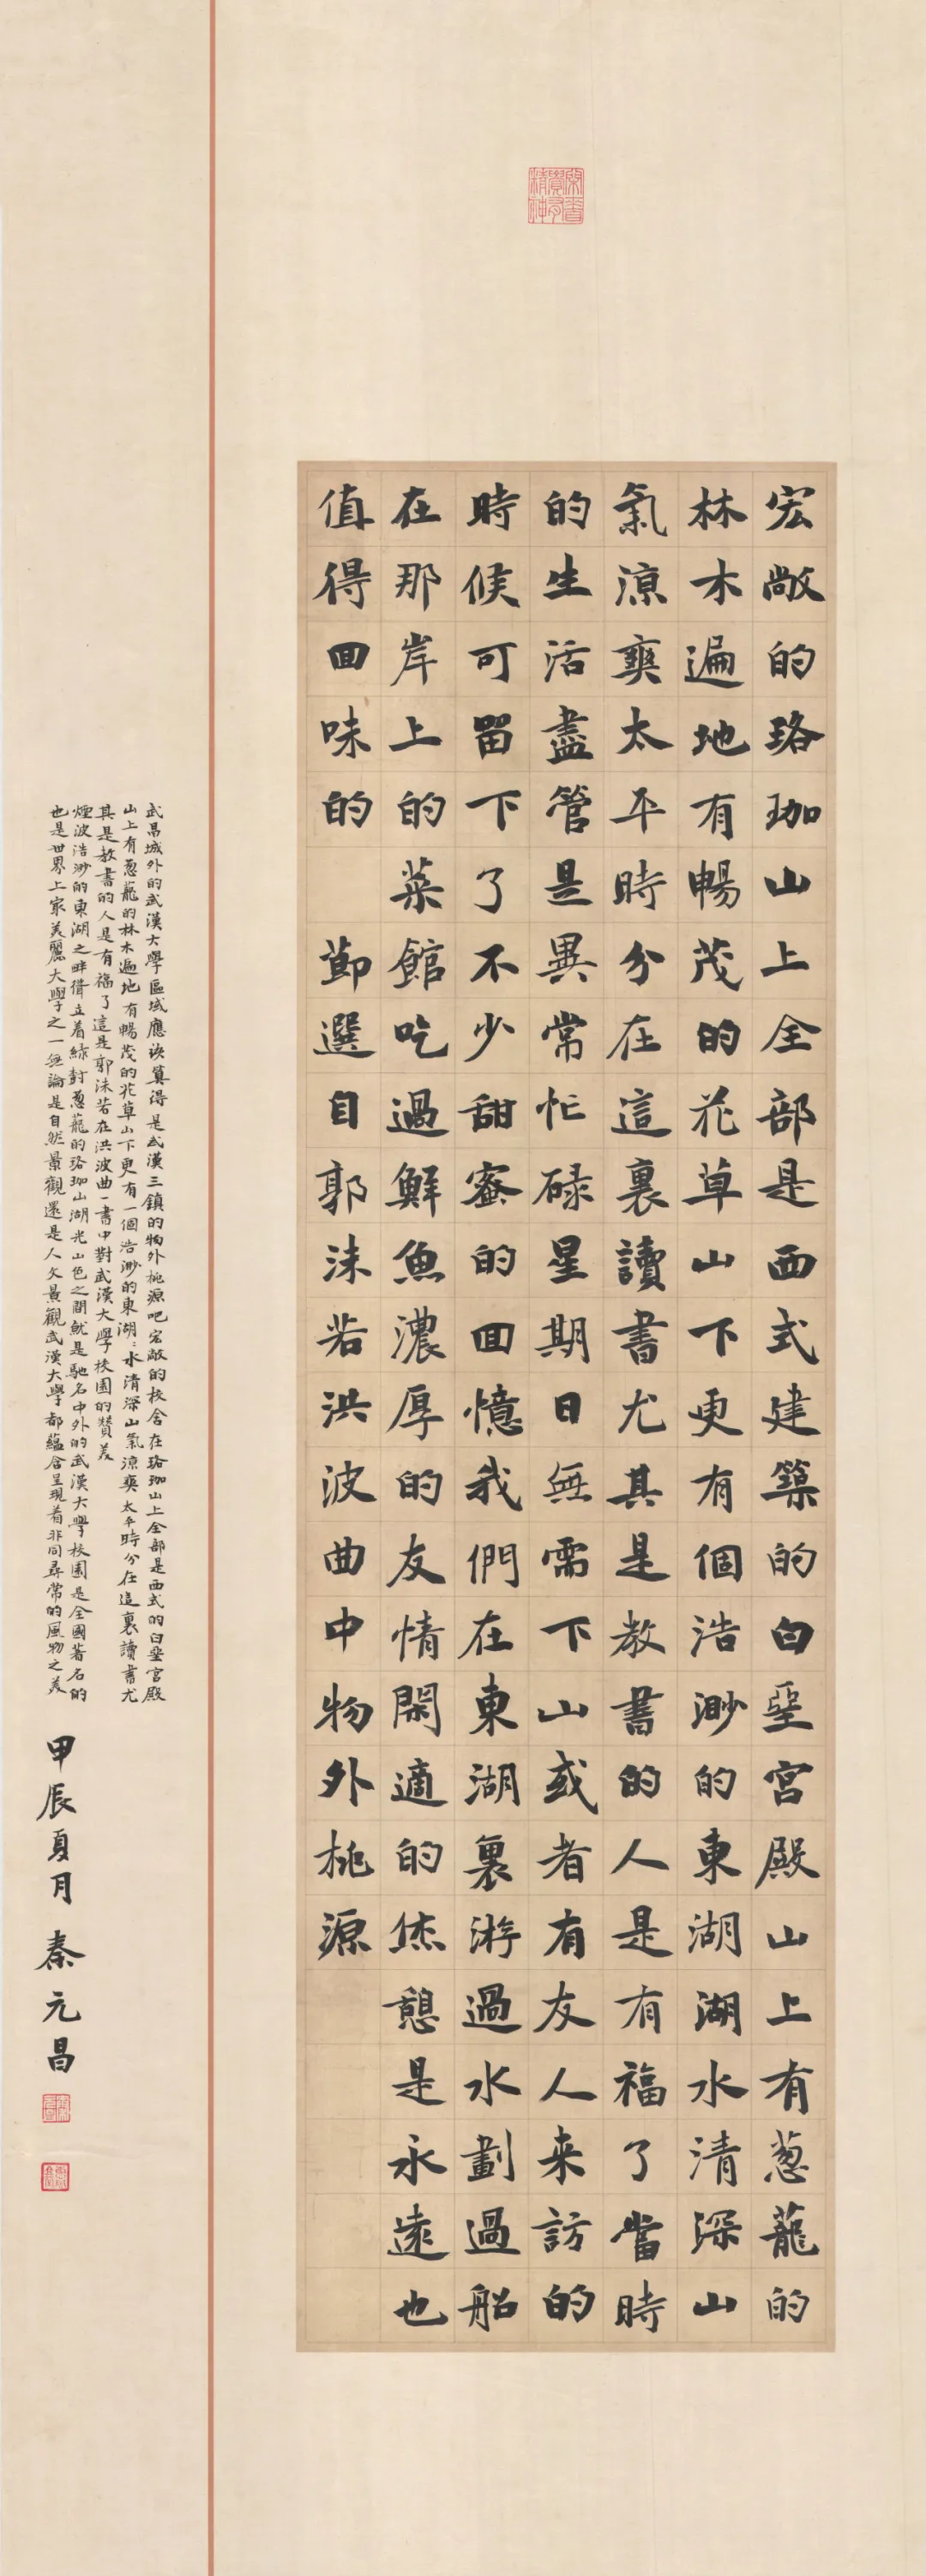 宏敞的珞珈山上全部是西式建築的白堊宮殿山上有葱蘢的
林木遍地有暢茂的花草山下更有個浩渺的東湖湖水清深山
氣涼爽太平時分在這裏讀書尤其是教書的人是有福了當時
的生活盡管是異常忙碌星期日無需下山或者有友人来訪的
時候可留下了不少甜蜜的回憶我們在東湖裏游過水劃過船
在那岸上的菜館吃過鮮魚濃厚的友情閑適的休憩是永遠也
值得回味的 節選自郭沫若洪波曲中物外桃源
武昌城外的武漢大學區域應該算得是武漢三鎮的物外桃源吧宏敞的校舍在珞珈山上全部是西式的白堊宮殿
山上有葱蘢的林木遍地有暢茂的花草山下更有一個浩渺的東湖湖水清深山氣涼爽太平時分在這裏讀書尤
其是教書的人是有福了這是郭沫若在洪波曲一書中對武漢大學校園的贊美
煙波浩渺的東湖之畔聳立着綠樹葱蘢的珞珈山湖光山色之間就是馳名中外的武漢大學校園是全國著名的
也是世界上最美麗大學之一無論是自然景觀還是人文景觀武漢大學都蘊含呈現着非同尋常的風物之美
甲辰夏月 秦元昌